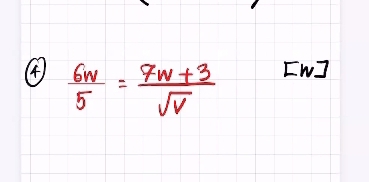 ④ 6w/5 = (7w + 3)/√v [w]